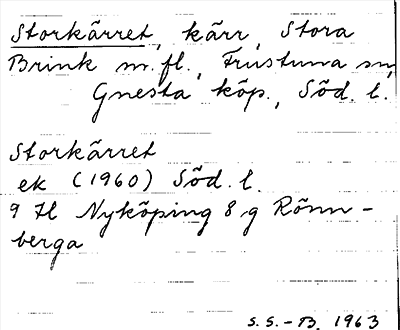 Storkärret, kärr, Stora
Brink m.fl., Frustuna sn,
Gnesta köp., Söd. l.
Storkärret
ek (1960) Söd. l.
9 H Nyköping 8 g Rönn-
berga
S.S.-B. 1963